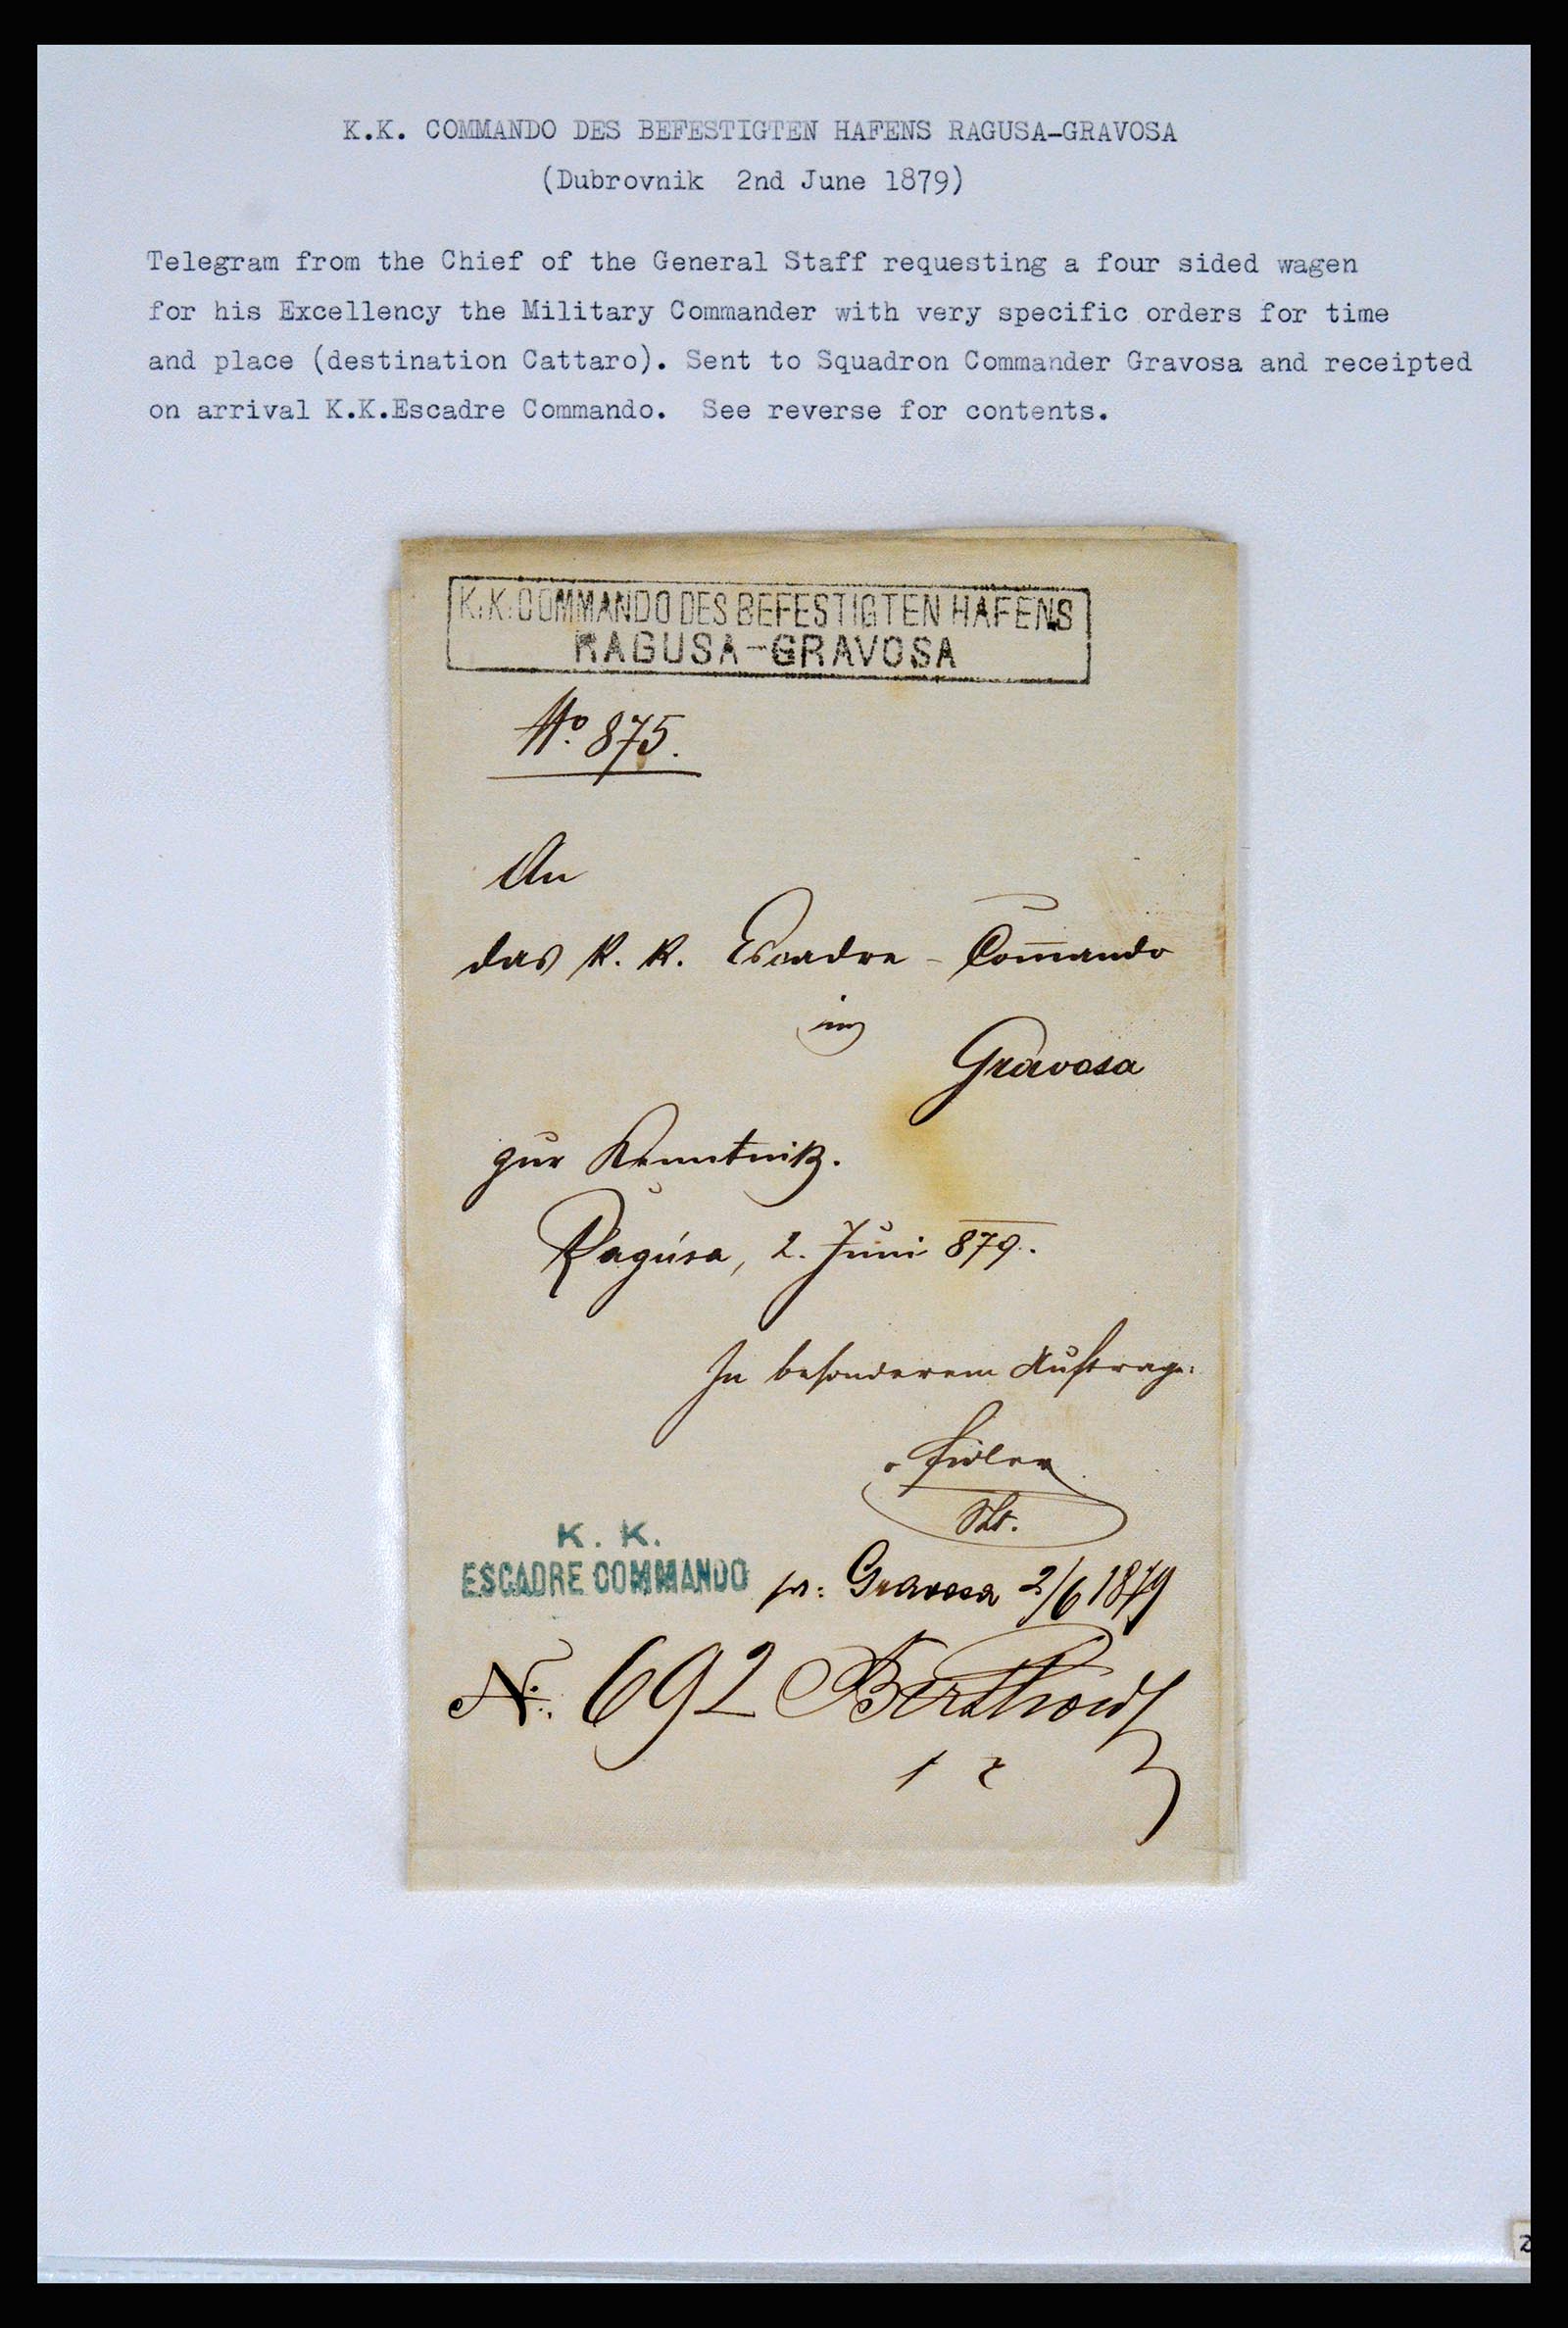 K.K. COMMANDO DES BEFESTIGTEN HAFENS RAGUSA-GRAVOSA
(Dubrovnik 2nd June 1879)
Telegram from the Chief of the General Staff requesting a four sided wagen
for his Excellency the Military Commander with very specific orders for time
and place (destination Cattaro). Sent to Squadron Commander Gravosa and receipted
on arrival K.K.Escadre Commando. See reverse for contents.
K.K. COMMANDO DES BEFESTIGTEN HAFENS
RAGUSA-GRAVOSA
No. 875.
An
das K. K. Escadre - Com̄ando
in
Gravosa
zur Kenntniß.
Ragusa, 2. Juni 879.
In besonderem Auftrage:
K. K.
ESCADRE COMMANDO
pr: Gravosa 2/6 1879
N: 692